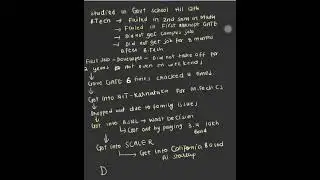 Studied in Govt school till 12th
B.Tech → Failed in 2nd sem in Math
→ Failed in First attempt GATE
→ Did not get campus job
→ Did not get job for 8 months
after B.Tech
First Job → Did not take off for
2 years not even on weekends
Gave GATE 6 times, cracked 4 times
Got into NIT-Karnataka For M.Tech CS
Dropped out due to family issues
Got into BSNL → Worst decision
Got out by paying 3.4 lakh
Bond
Got into SCALER
Get into California Based
AI startup
D